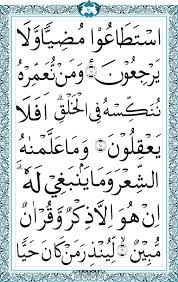 اسْتَطَاعُوْا مُضِيًّا وَّلَا
يَرْجِعُوْنَ ۞ وَمَنْ نُّعَمِّرْهُ
نُنَكِّسْهُ فِي الْخَلْقِ ؕ اَفَلَا
يَعْقِلُوْنَ ۞ وَمَا عَلَّمْنٰهُ
الشِّعْرَ وَمَا يَنْۢبَغِيْ لَهٗ ؕ
اِنْ هُوَ اِلَّا ذِكْرٌ وَّقُرْاٰنٌ
مُّبِيْنٌ ۞ لِّيُنْذِرَ مَنْ كَانَ حَيًّا